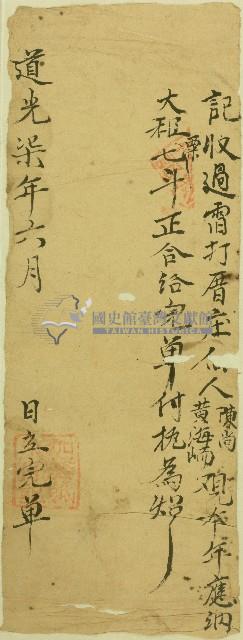 記收過霄打厝庄佃人陳尚黃海本年應納
大租粟七斗正合給完單付執為炤
道光柒年六月 日立完單
國史館臺灣文獻館
TAIWAN HISTORICA